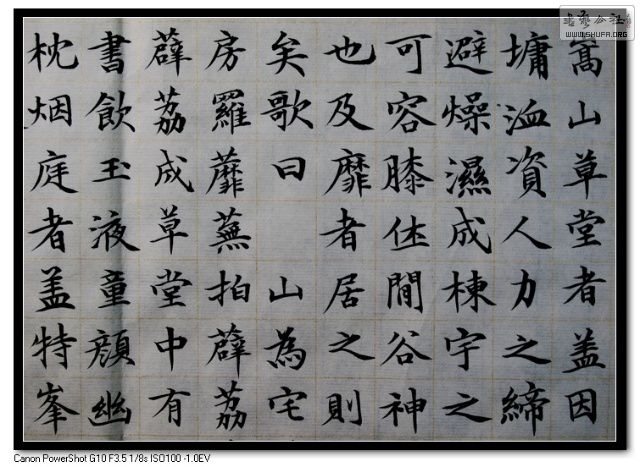 嵩山草堂者盖因
墉洫資人力之締
避燥濕成棟宇之
可容膝休閒谷神
也及靡者居之則
矣歌曰 山為宅
房羅蘼蕪拍薜荔
薜荔成草堂中有
書飲玉液童顔幽
枕烟庭者盖特峯
书艺公社
WWW.SHUFA.ORG
Canon PowerShot G10 F3.5 1/8s ISO100 -1.0EV